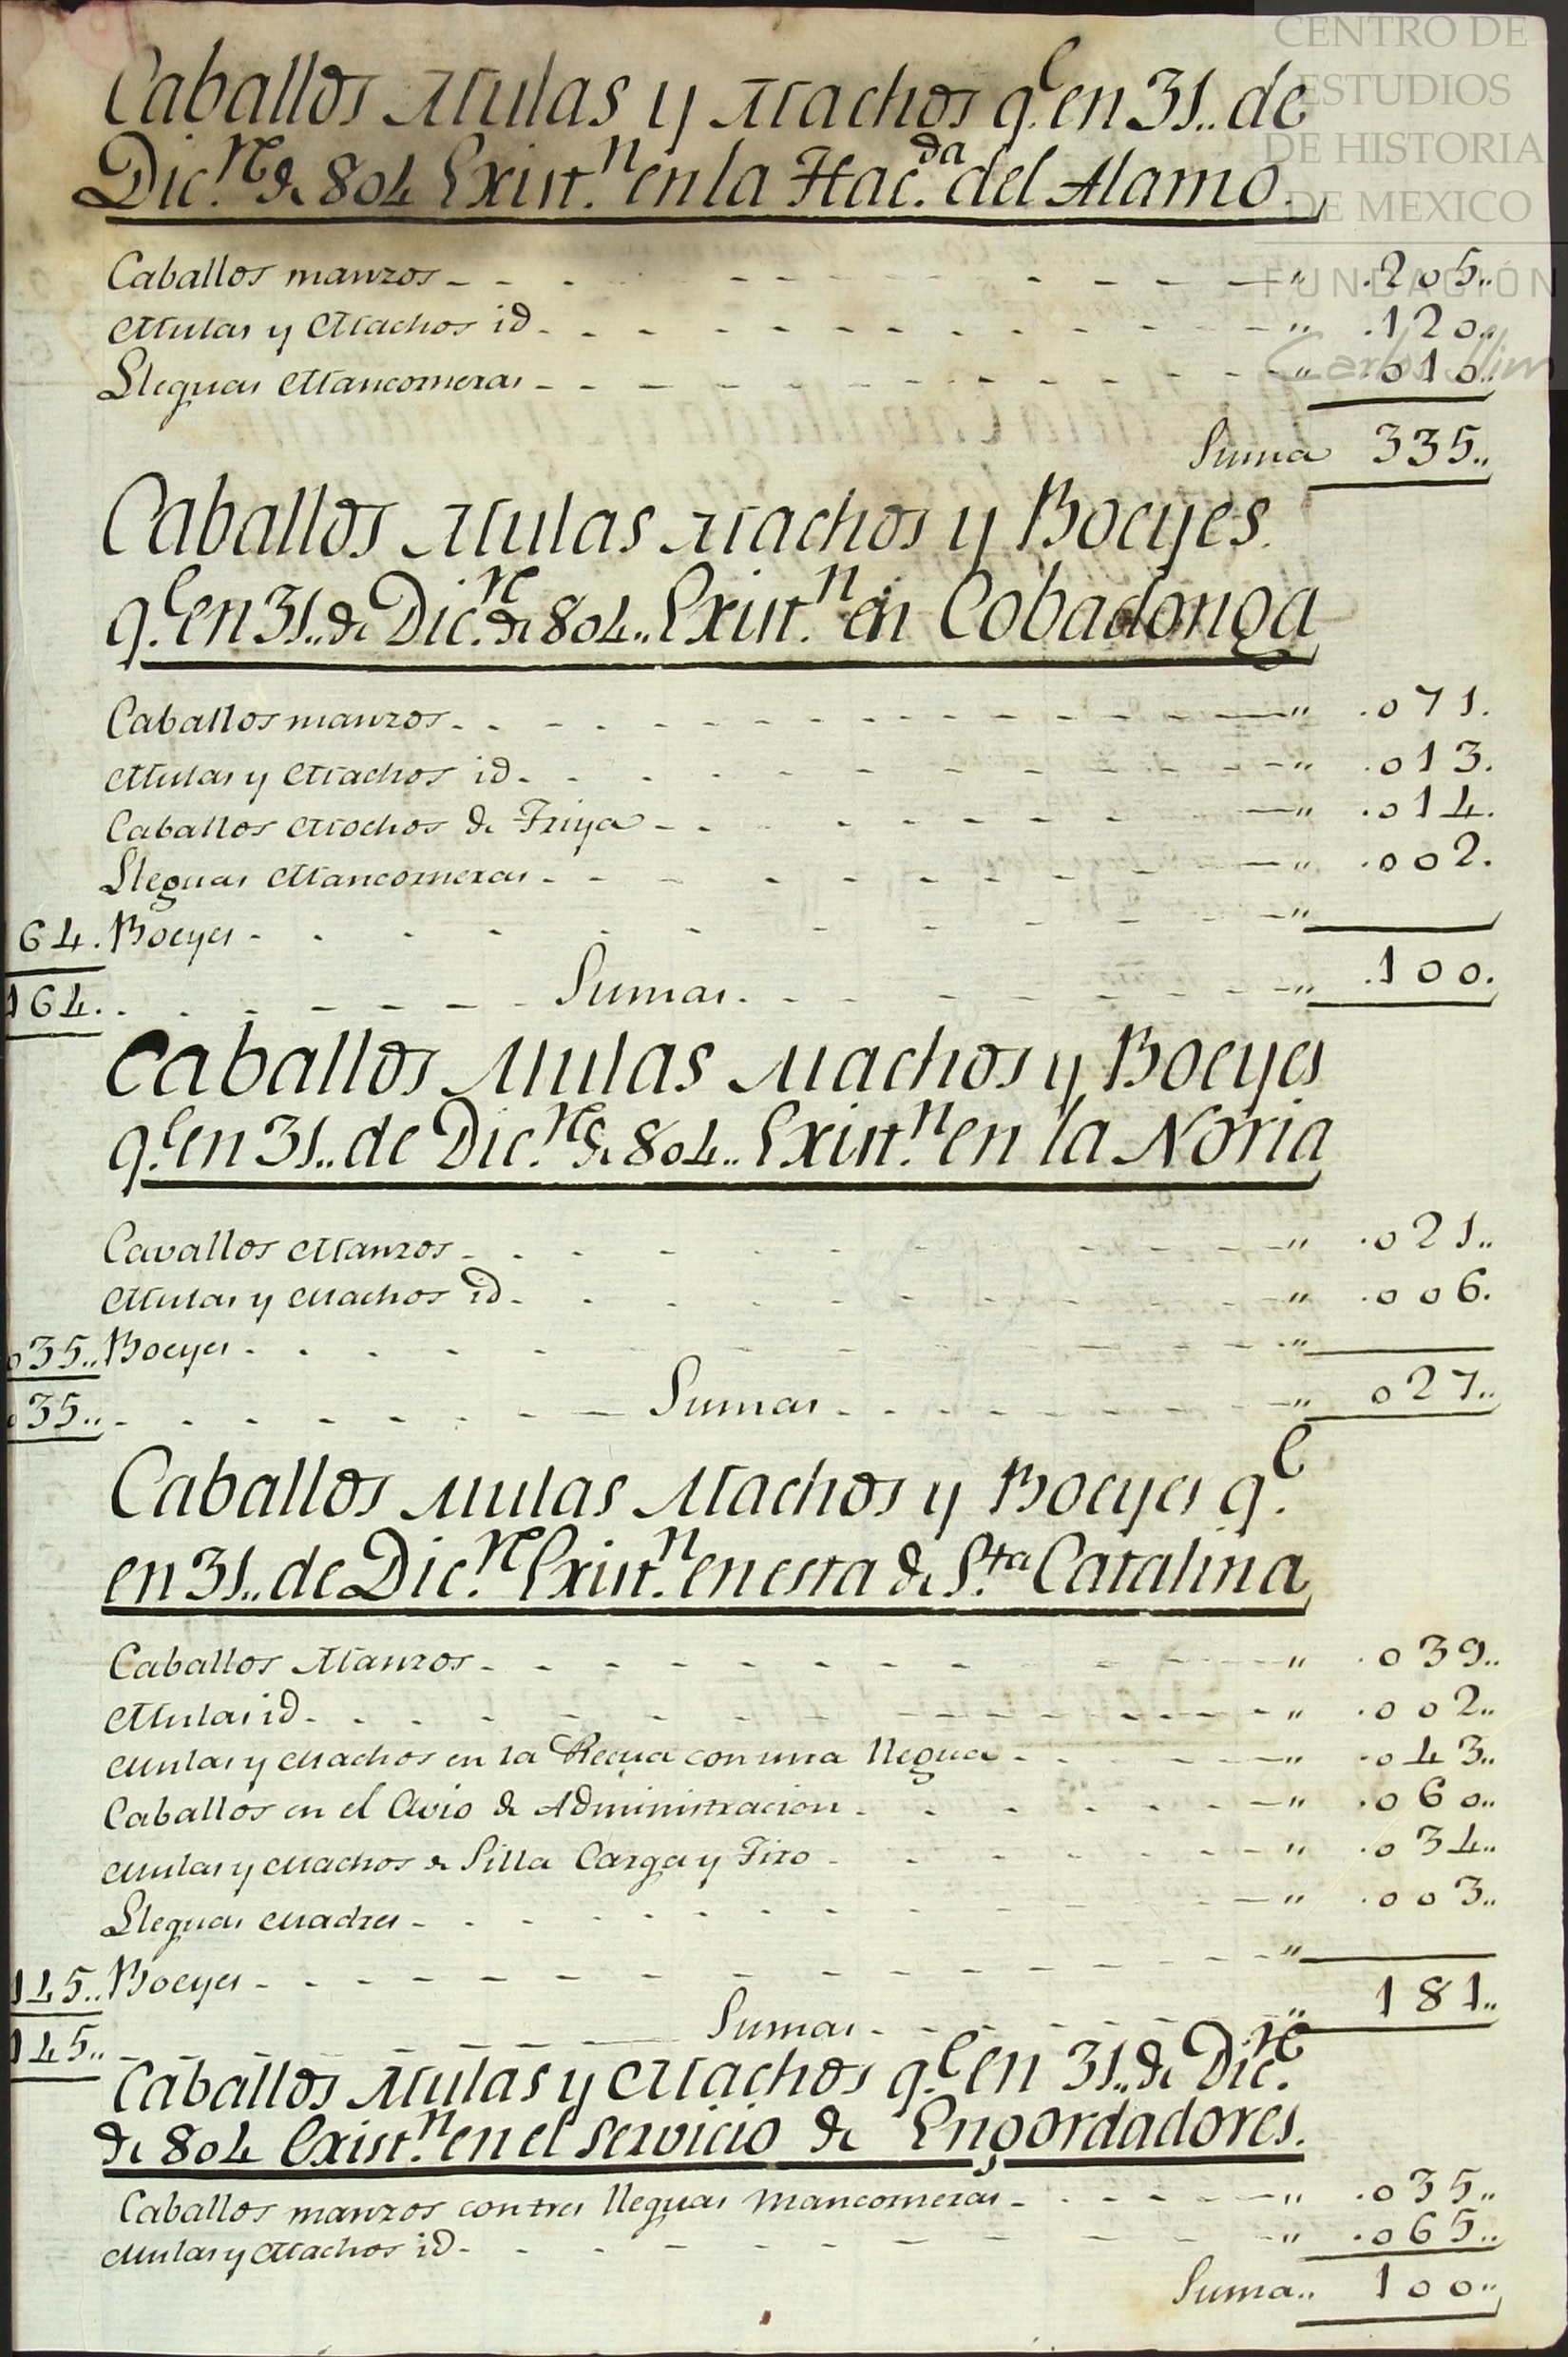 CENTRO DE
ESTUDIOS
DE HISTORIA
DE MEXICO
FUNDACIÓN
Carlos Slim
Caballos Mulas y Machos q.e en 31.. de
Dic.re de 804 Exist.n en la Hac.da del Alamo.
Caballos manzos - - - - " .205..
Mulas y Machos id - - - - " .120..
Lleguas Mancorneras - - - - " .010..
Suma 335..
Caballos Mulas Machos y Boeyes.
q.e en 31.. de Dic.re de 804.. Exist.n en Cobadonga
Caballos manzos - - - - " .071.
Mulas y Machos id - - - - " .013.
Caballos Mochos de Friya - - - - " .014.
Lleguas Mancorneras - - - - " .002.
64. Boeyes - - - - "
164. - - - - Sumas. - - - - " .100.
Caballos Mulas Machos y Boeyes
q.e en 31.. de Dic.re de 804.. Exist.n en la Noria
Cavallos Manzos - - - - " .021..
Mulas y Machos id - - - - " .006.
035.. Boeyes - - - - "
035.. - - - - Sumas - - - - " 027..
Caballos Mulas Machos y Boeyes q.e
en 31.. de Dic.re Exist.n en esta de S.ta Catalina
Caballos Manzos - - - - " .039..
Mulas id - - - - " .002..
Mulas y Machos en la Recua con una llegua - - - - " .043..
Caballos en el Avio de Administracion - - - - " .060..
Mulas y Machos de Silla Carga y Tiro - - - - " .034..
Lleguas Madres - - - - " .003..
145.. Boeyes - - - - "
145.. - - - - Sumas - - - - " 181..
Caballos Mulas y Machos q.e en 31.. de Dic.re
de 804 Exist.n en el servicio de Engordadores.
Caballos manzos con tres lleguas mancorneras - - - - " .035..
Mulas y Machos id - - - - " .065..
Suma.. 100..